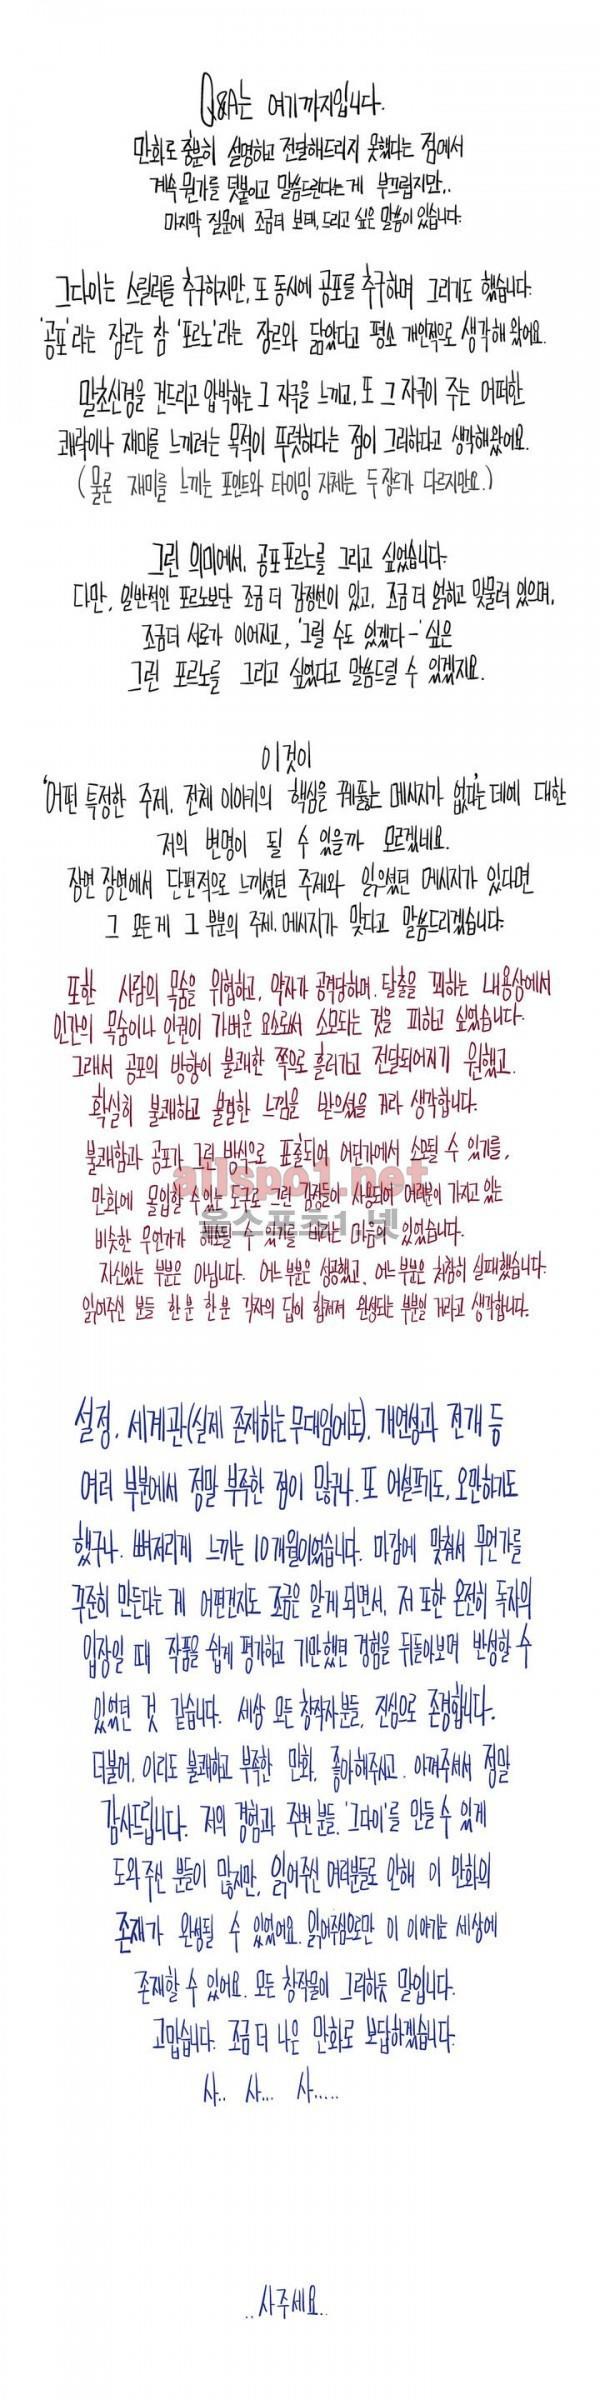 Q&A는 여기까지입니다.
만화로 충분히 설명하고 전달해드리지 못했다는 점에서
계속 뭔가를 덧붙이고 말씀드린다는게 부끄럽지만..
마지막 질문에 조금 더 보태, 드리고 싶은 말씀이 있습니다.
그다이는 스릴러를 추구하지만, 또 동시에 공포를 추구하며 그리기도 했습니다.
'공포'라는 장르는 참 '포르노'라는 장르와 닮았다고 평소 개인적으로 생각해 왔어요.
말초신경을 건드리고 압박하는 그 자극을 느끼고, 또 그 자극이 주는 어떠한
쾌락이나 재미를 느끼려는 목적이 뚜렷하다는 점이 그러하다고 생각해왔어요.
(물론 재미를 느끼는 포인트와 타이밍 자체는 두 장르가 다르지만요.)
그런 의미에서, 공포 포르노를 그리고 싶었습니다.
다만, 일반적인 포르노보단 조금 더 감정선이 있고, 조금 더 얽히고 맞물려 있으며,
조금더 서로가 이어지고, '그럴 수도 있겠다-' 싶은
그런 포르노를 그리고 싶었다고 말씀드릴 수 있겠지요.
이것이
'어떤 특정한 주제, 전체 이야기의 핵심을 꿰뚫는 메시지가 없다'는 데에 대한
저의 변명이 될 수 있을까 모르겠네요.
장면 장면에서 단편적으로 느끼셨던 주제와 읽으셨던 메시지가 있다면
그 모든게 그 부분의 주제, 메시지가 맞다고 말씀드리겠습니다.
또한 사람의 목숨을 위협하고, 약자가 공격당하며, 탈출을 꾀하는 내용상에서
인간의 목숨이나 인권이 가벼운 요소로써 소모되는 것을 피하고 싶었습니다.
그래서 공포의 방향이 불쾌한 쪽으로 흘러가고 전달되어지기 원했고,
확실히 불쾌하고 불결한 느낌을 받으셨을 거라 생각합니다.
불쾌함과 공포가 그런 방식으로 표출되어 어딘가에서 소모될 수 있기를,
만화에 몰입할 수 있는 도구로 그런 감정들이 사용되어 여러분이 가지고 있는
비슷한 무언가가 해소될 수 있기를 바라는 마음이 있었습니다.
자신있는 부분은 아닙니다. 어느 부분은 성공했고, 어느 부분은 처참히 실패했습니다.
읽어주신 분들 한 분 한 분 각자의 답이 합쳐져 완성되는 부분일 거라고 생각합니다.
allspo1.net
올스포츠1.넷
설정, 세계관(실제 존재하는 무대임에도), 개연성과 전개 등
여러 부분에서 정말 부족한 점이 많구나. 또 어설프기도, 오만하기도
했구나. 뼈저리게 느끼는 10개월이었습니다. 마감에 맞춰서 무언가를
꾸준히 만든다는 게 어떤건지도 조금은 알게 되면서, 저 또한 온전히 독자의
입장일 때 작품을 쉽게 평가하고 기만했던 경험을 뒤돌아보며 반성할 수
있었던 것 같습니다. 세상 모든 창작자분들, 진심으로 존경합니다.
더불어, 이리도 불쾌하고 부족한 만화, 좋아해주시고, 아껴주셔서 정말
감사드립니다. 저의 경험과 주변 분들, '그다이'를 만들 수 있게
도와 주신 분들이 많지만, 읽어주신 여러분들로 인해 이 만화의
존재가 완성될 수 있었어요. 읽어주심으로만 이 이야기는 세상에
존재할 수 있어요. 모든 창작물이 그러하듯 말입니다.
고맙습니다. 조금 더 나은 만화로 보답하겠습니다.
사.. 사... 사.....
..사주세요..